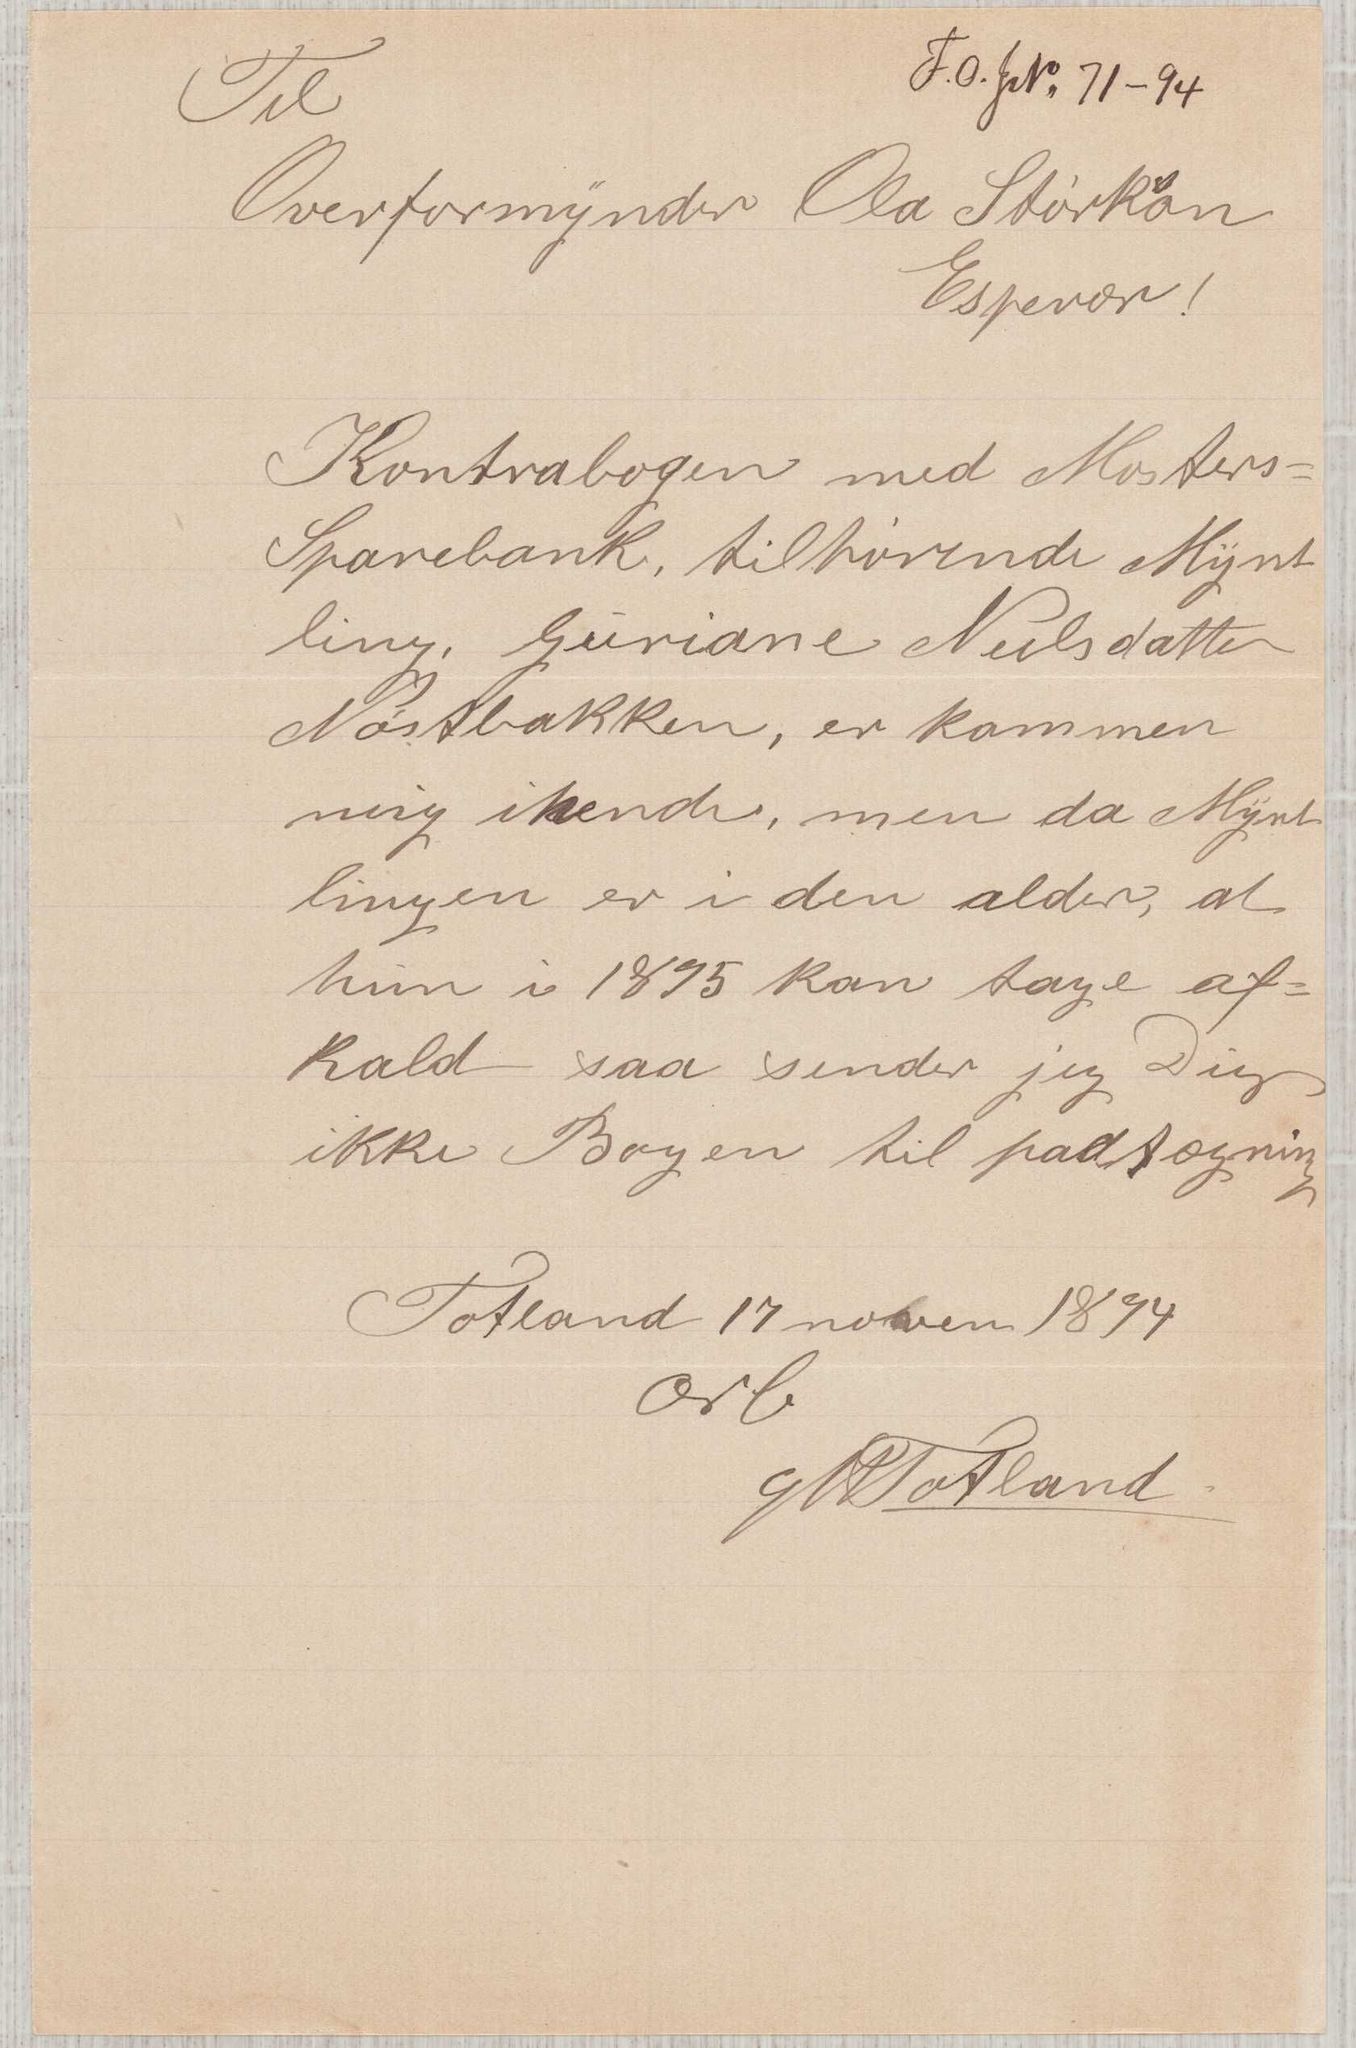 F.O. JNo. 71-94
Til
Overformynder Ola Störkön
Espevær!
Kontrabogen med Mosters=
Sparebank, tilhörende Mynt
ling, Guriane Neilsdatter
Nöstbakken, er kommen
mig ihende, men da Mynt
lingen er i den alder, at
hun i 1895 kan tage af=
kald saa sender jeg Dig
ikke Bogen til padtegning
Totland 17 noven 1894
ærb
Totland